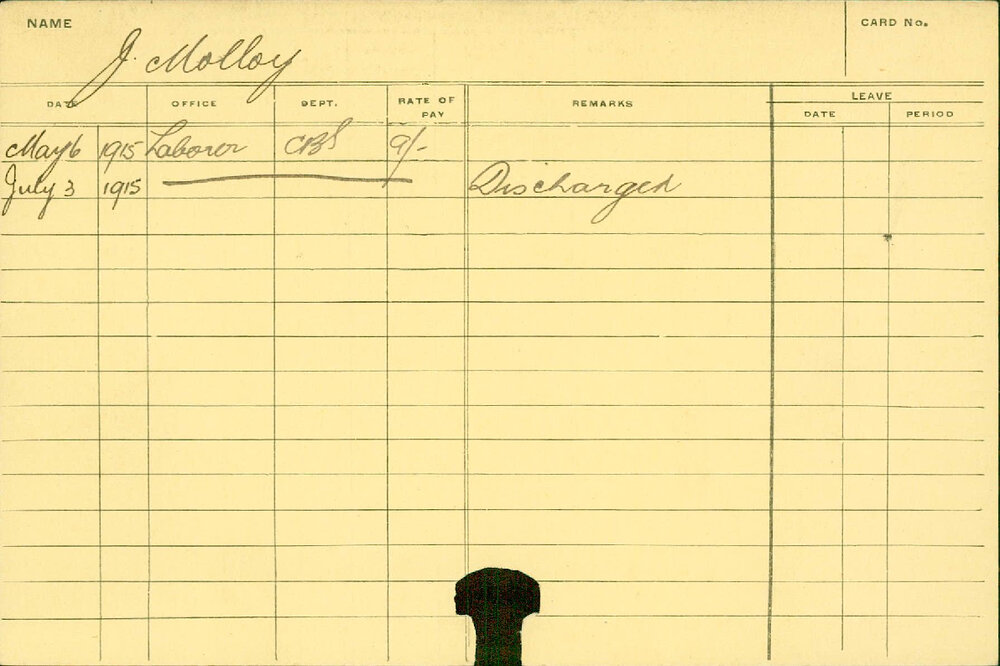 NAME J. Molloy CARD No.
DATE OFFICE DEPT. RATE OF PAY REMARKS LEAVE
DATE PERIOD
May 6 1915 Laborer CBS 9/-
July 3 1915 Discharged